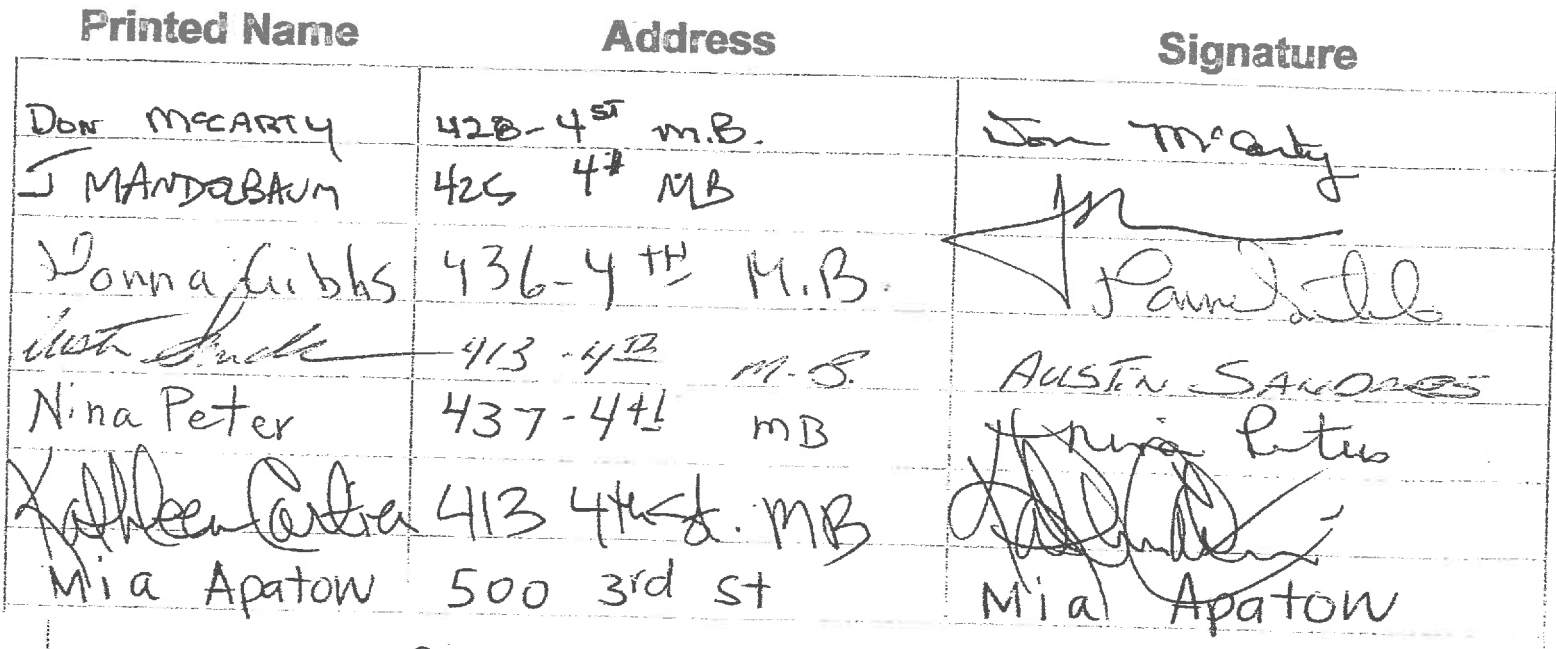 Printed Name Address Signature
DON McCARTY 428-4ST M.B. Don McCarty
J MANDELBAUM 425 4th MB
Donna Gibbs 436-4TH M.B.
413-4TH M.B. AUSTIN SANDERS
Nina Peter 437-4th MB Nina Peter
Kathleen Cartier 413 4th St. MB
Mia Apatow 500 3rd St Mia Apatow